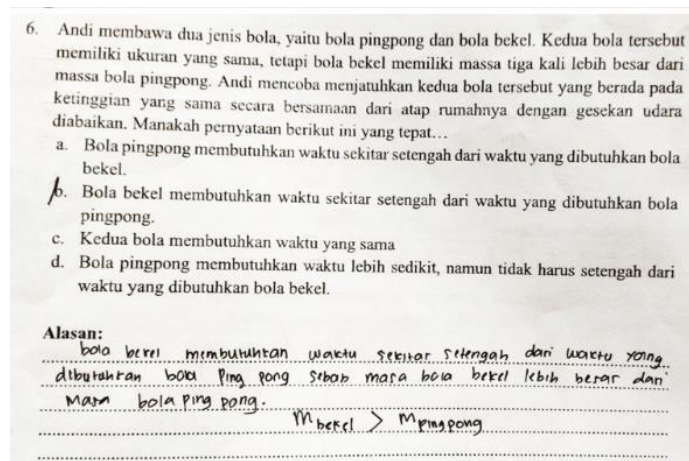 6. Andi membawa dua jenis bola, yaitu bola pingpong dan bola bekel. Kedua bola tersebut
memiliki ukuran yang sama, tetapi bola bekel memiliki massa tiga kali lebih besar dari
massa bola pingpong. Andi mencoba menjatuhkan kedua bola tersebut yang berada pada
ketinggian yang sama secara bersamaan dari atap rumahnya dengan gesekan udara
diabaikan. Manakah pernyataan berikut ini yang tepat…
a. Bola pingpong membutuhkan waktu sekitar setengah dari waktu yang dibutuhkan bola
bekel.
b. Bola bekel membutuhkan waktu sekitar setengah dari waktu yang dibutuhkan bola
pingpong.
c. Kedua bola membutuhkan waktu yang sama
d. Bola pingpong membutuhkan waktu lebih sedikit, namun tidak harus setengah dari
waktu yang dibutuhkan bola bekel.
Alasan:
bola bekel membutuhkan waktu sekitar setengah dari waktu yang
dibutuhkan bola Ping pong sebab masa bola bekel lebih besar dari
Masa bola ping pong.
M bekel > M pingpong